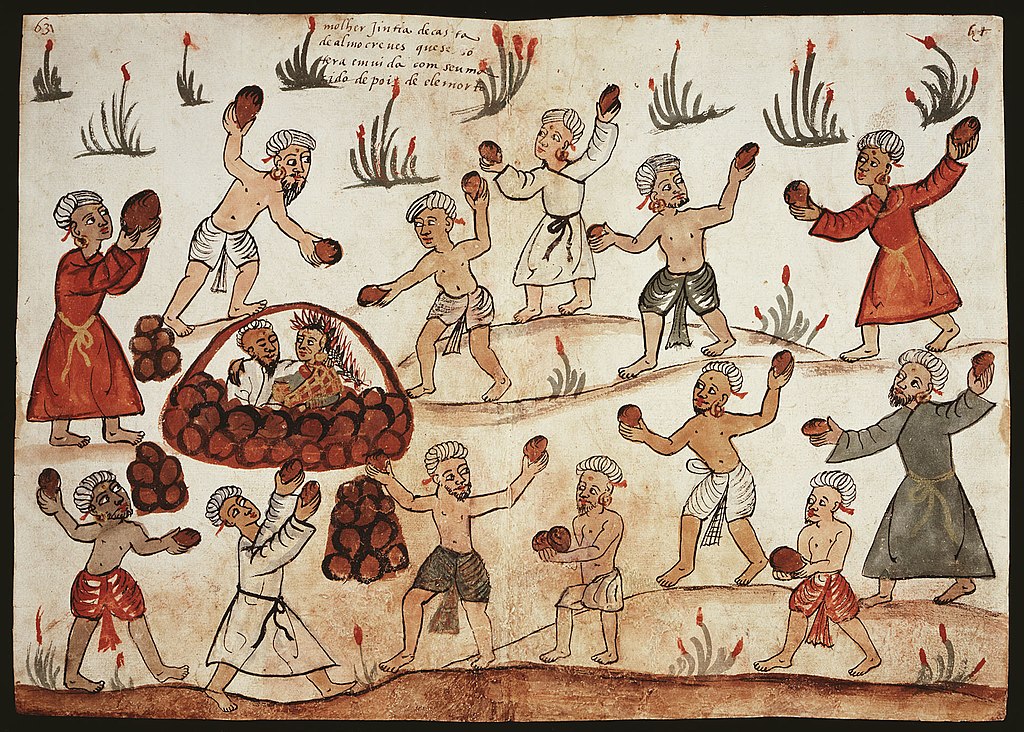 63
molher Jintia de casta
de almocreues que se so
tera em uida com seu ma
rido de poiz de ele morto